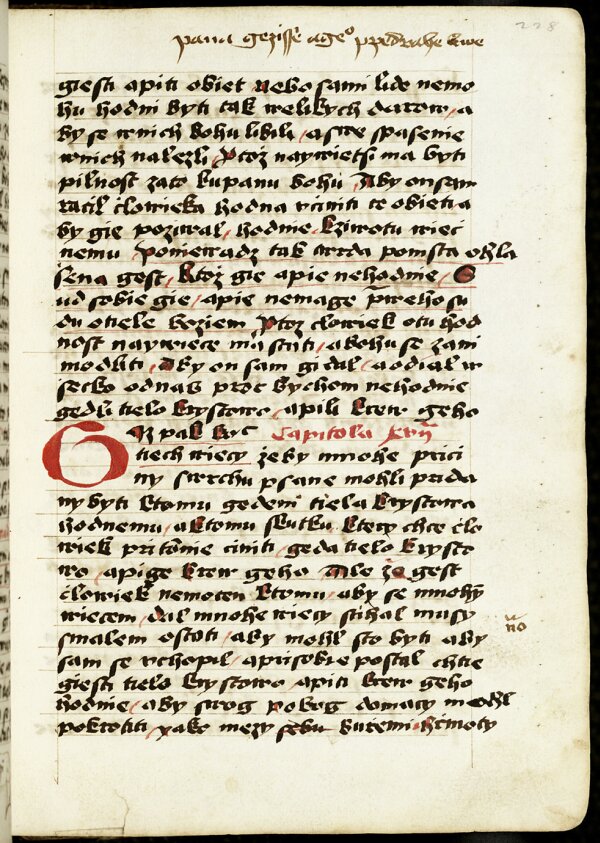 228
pana gezisse a geº przedrahe krwe
giesti apiti obiet nebo sami lide nemo
hu hodni byti tak welikych darow, a
by se w nich bohu libili, a swe spasenie
w nich nalezli, Ptoz naywietsi ma byti
pilnost zato ku panu bohu, Aby on sam
racil clowieka hodna vciniti te obieti a
by gie pozıwal, hodnie, k ziwotu wiec
nemu, poniewadz tak twrda pomsta ohla
sena gest, Ktoz gie a pie nehodnie, S
ud sobie gie, a pie nemage prweho su
du o tiele bozıem Ptoz clowiek o tu hod
nost naywiece ma stati, a bohu se zami
modliti, Aby on sam gi dal, a odial w
secko od nas proc bychom nehodnie
gedli tielo krystowo, a pili krew geho
Iz pak bych Capitola xvii
tiech wiecy zeby mnohe prici
ny swrchu psane mohli prida
ny byti k tomu gedeni tiela krystowa
hodnemu, a k tomu skutku, ktery chce clo
wiek pritomnie ciniti, geda tielo krysto
wo, a pige krew geho Ale ze gest
clowiek nemocen k tomu, aby se mnohym
wiecem, dal mnohe wiecy stihal musy
s malem ostati, aby mohl sto byti aby
sam se vchopil, a pri sobie postal chtie
giesti tielo krystowo, a piti krew geho
hodnie, aby swog pokog domacy mohl
pokrotiti, yako mezy sebu burzemi hrmoty